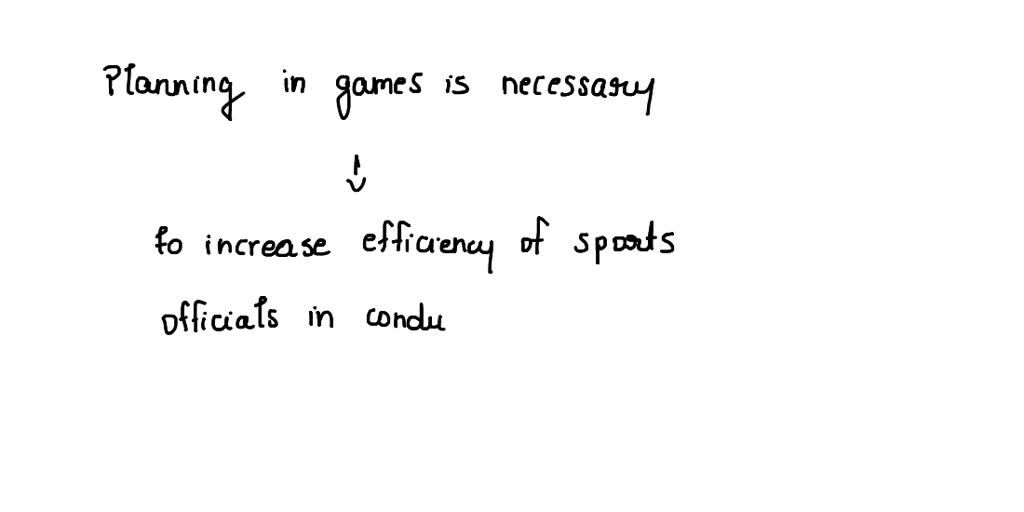 Planning in games is necessary
to increase efficiency of sports
officials in condu